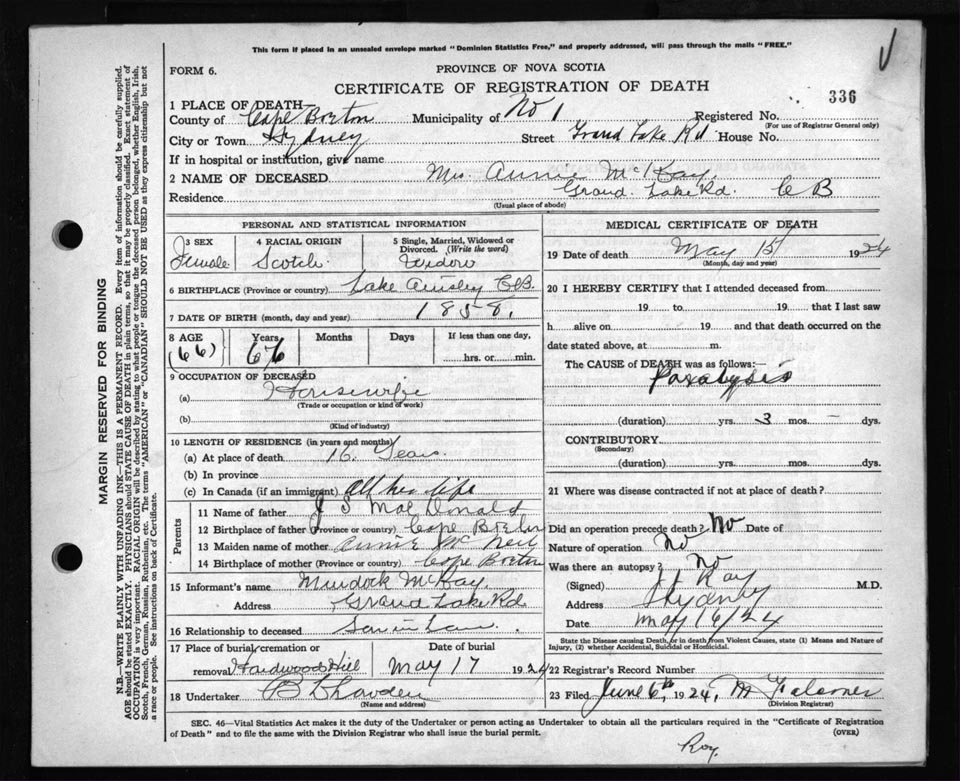 This form if placed in an unsealed envelope marked "Dominion Statistics Free," and properly addressed, will pass through the mails "FREE."
FORM 6.
PROVINCE OF NOVA SCOTIA
CERTIFICATE OF REGISTRATION OF DEATH
336
1 PLACE OF DEATH—
County of Cape Breton Municipality of No 1 Registered No.
(For use of Registrar General only)
City or Town Sydney Street Grand Lake Rd House No.
If in hospital or institution, give name
2 NAME OF DECEASED Mrs. Annie McKay
Residence Grand Lake Rd. C B
(Usual place of abode)
PERSONAL AND STATISTICAL INFORMATION
3 SEX 4 RACIAL ORIGIN 5 Single, Married, Widowed or Divorced. (Write the word)
Female Scotch Widow
6 BIRTHPLACE (Province or country) Lake Ainsley C.B.
7 DATE OF BIRTH (month, day and year) 1858.
8 AGE Years Months Days If less than one day,
(66) 66 hrs. or min.
9 OCCUPATION OF DECEASED
(a) Housewife
(Trade or occupation or kind of work)
(b)
(Kind of industry)
10 LENGTH OF RESIDENCE (in years and months)
(a) At place of death 16 Years
(b) In province
(c) In Canada (if an immigrant) All her life
Parents
11 Name of father J S MacDonald
12 Birthplace of father (Province or country) Cape Breton
13 Maiden name of mother Annie McNeil
14 Birthplace of mother (Province or country) Cape Breton
15 Informant's name Murdock McKay
Address Grand Lake Rd
16 Relationship to deceased Son in Law
17 Place of burial, cremation or Date of burial
removal Hardwood Hill May 17 1924
18 Undertaker
(Name and address)
MEDICAL CERTIFICATE OF DEATH
19 Date of death May 15 1924
(Month, day and year)
20 I HEREBY CERTIFY that I attended deceased from
19 to 19 that I last saw
h alive on 19 and that death occurred on the
date stated above, at m.
The CAUSE OF DEATH was as follows:—
Paralysis
(duration) yrs. 3 mos. — dys.
CONTRIBUTORY
(Secondary)
(duration) yrs. mos. dys.
21 Where was disease contracted if not at place of death?
Did an operation precede death? No Date of
Nature of operation no
Was there an autopsy? no
(Signed) Roy M.D.
Address Sydney
Date May 16/24
State the Disease causing Death, or in death from Violent Causes, state (1) Means and Nature of Injury, (2) whether Accidental, Suicidal or Homicidal.
22 Registrar's Record Number
23 Filed June 6th, 1924, M Falconer
(Division Registrar)
SEC. 46—Vital Statistics Act makes it the duty of the Undertaker or person acting as Undertaker to obtain all the particulars required in the "Certificate of Registration
of Death" and to file the same with the Division Registrar who shall issue the burial permit.
(OVER)
Roy.
MARGIN RESERVED FOR BINDING
N.B.—WRITE PLAINLY WITH UNFADING INK—THIS IS A PERMANENT RECORD. Every item of information should be carefully supplied.
AGE should be stated EXACTLY. PHYSICIANS should STATE CAUSE OF DEATH in plain terms, so that it may be properly classified. Exact statement of
OCCUPATION is very important. RACIAL ORIGIN will be described by stating to what people or tongue the deceased person belonged, whether English, Irish,
Scotch, French, German, Russian, Ruthenian, etc. The terms "AMERICAN" or "CANADIAN" SHOULD NOT BE USED as they express citizenship but not
a race or people. See instructions on back of Certificate.